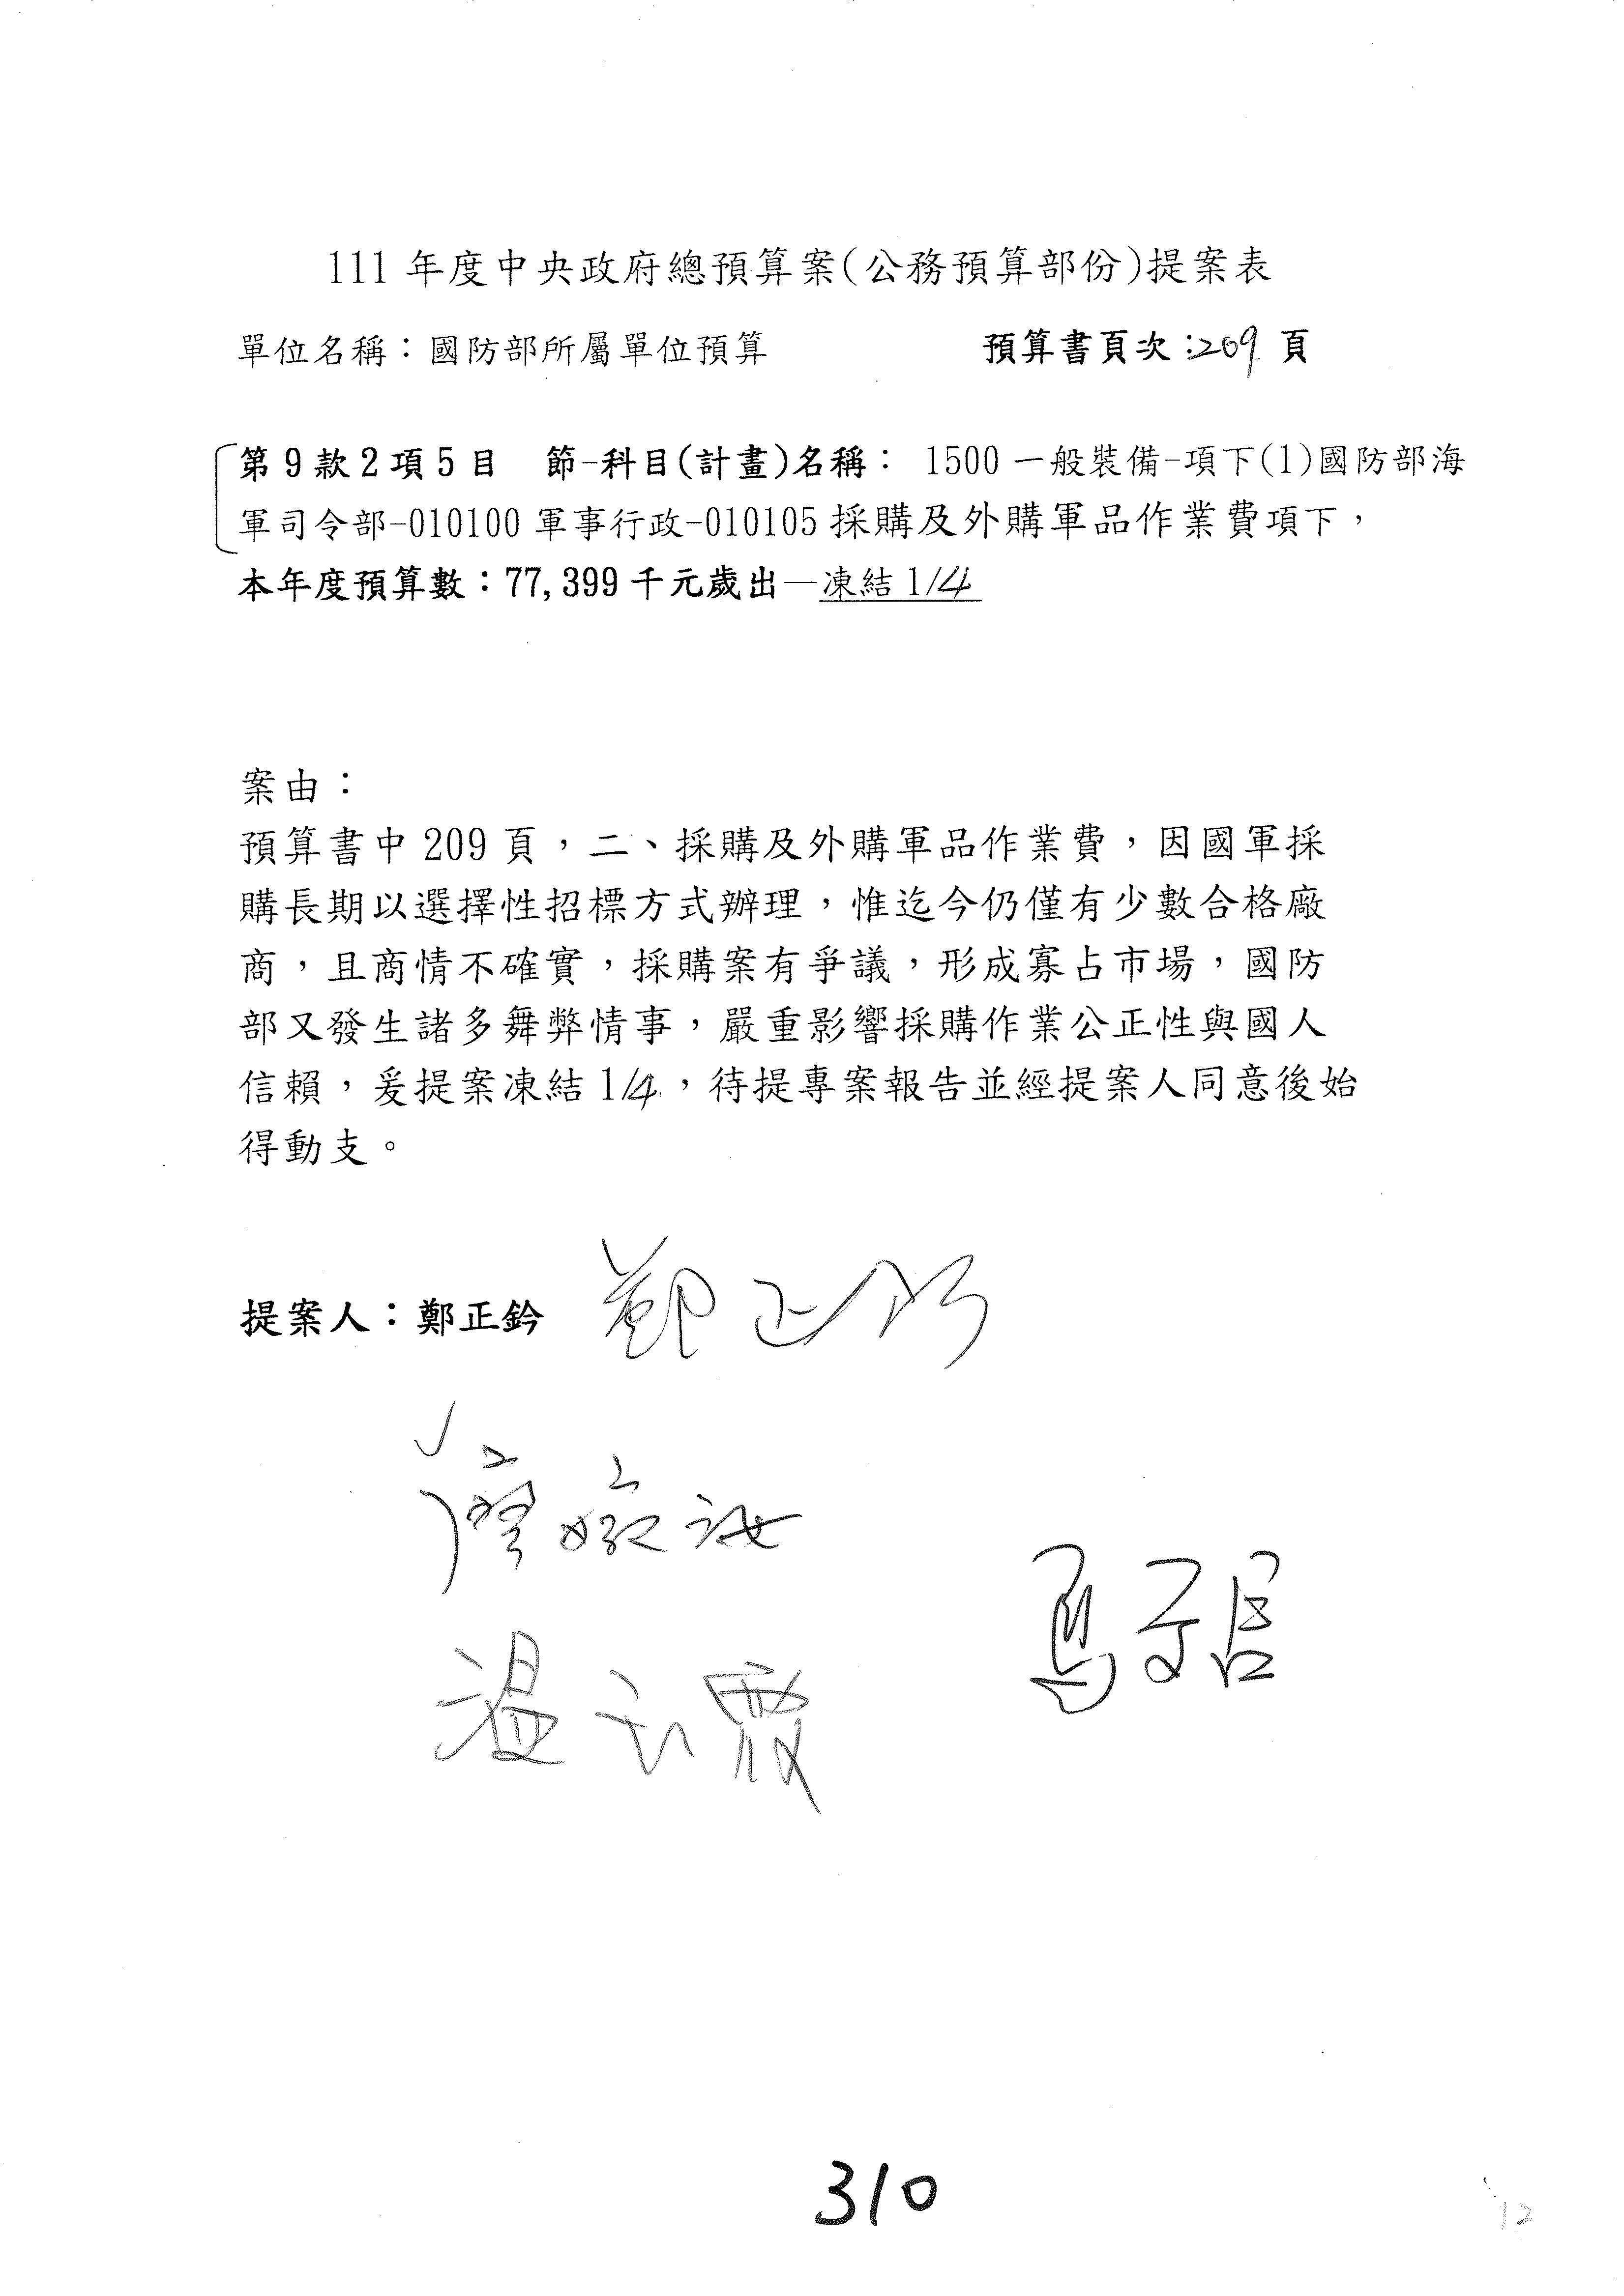 111 年度中央政府總預算案(公務預算部份)提案表
單位名稱：國防部所屬單位預算 預算書頁次：209 頁
第 9 款 2 項 5 目 節-科目(計畫)名稱： 1500 一般裝備-項下(1)國防部海
軍司令部-010100 軍事行政-010105 採購及外購軍品作業費項下，
本年度預算數：77,399 千元歲出—凍結 1/4
案由：
預算書中 209 頁，二、採購及外購軍品作業費，因國軍採
購長期以選擇性招標方式辦理，惟迄今仍僅有少數合格廠
商，且商情不確實，採購案有爭議，形成寡占市場，國防
部又發生諸多舞弊情事，嚴重影響採購作業公正性與國人
信賴，爰提案凍結 1/4，待提專案報告並經提案人同意後始
得動支。
提案人：鄭正鈐 鄭正鈐
溫玉霞
310
12